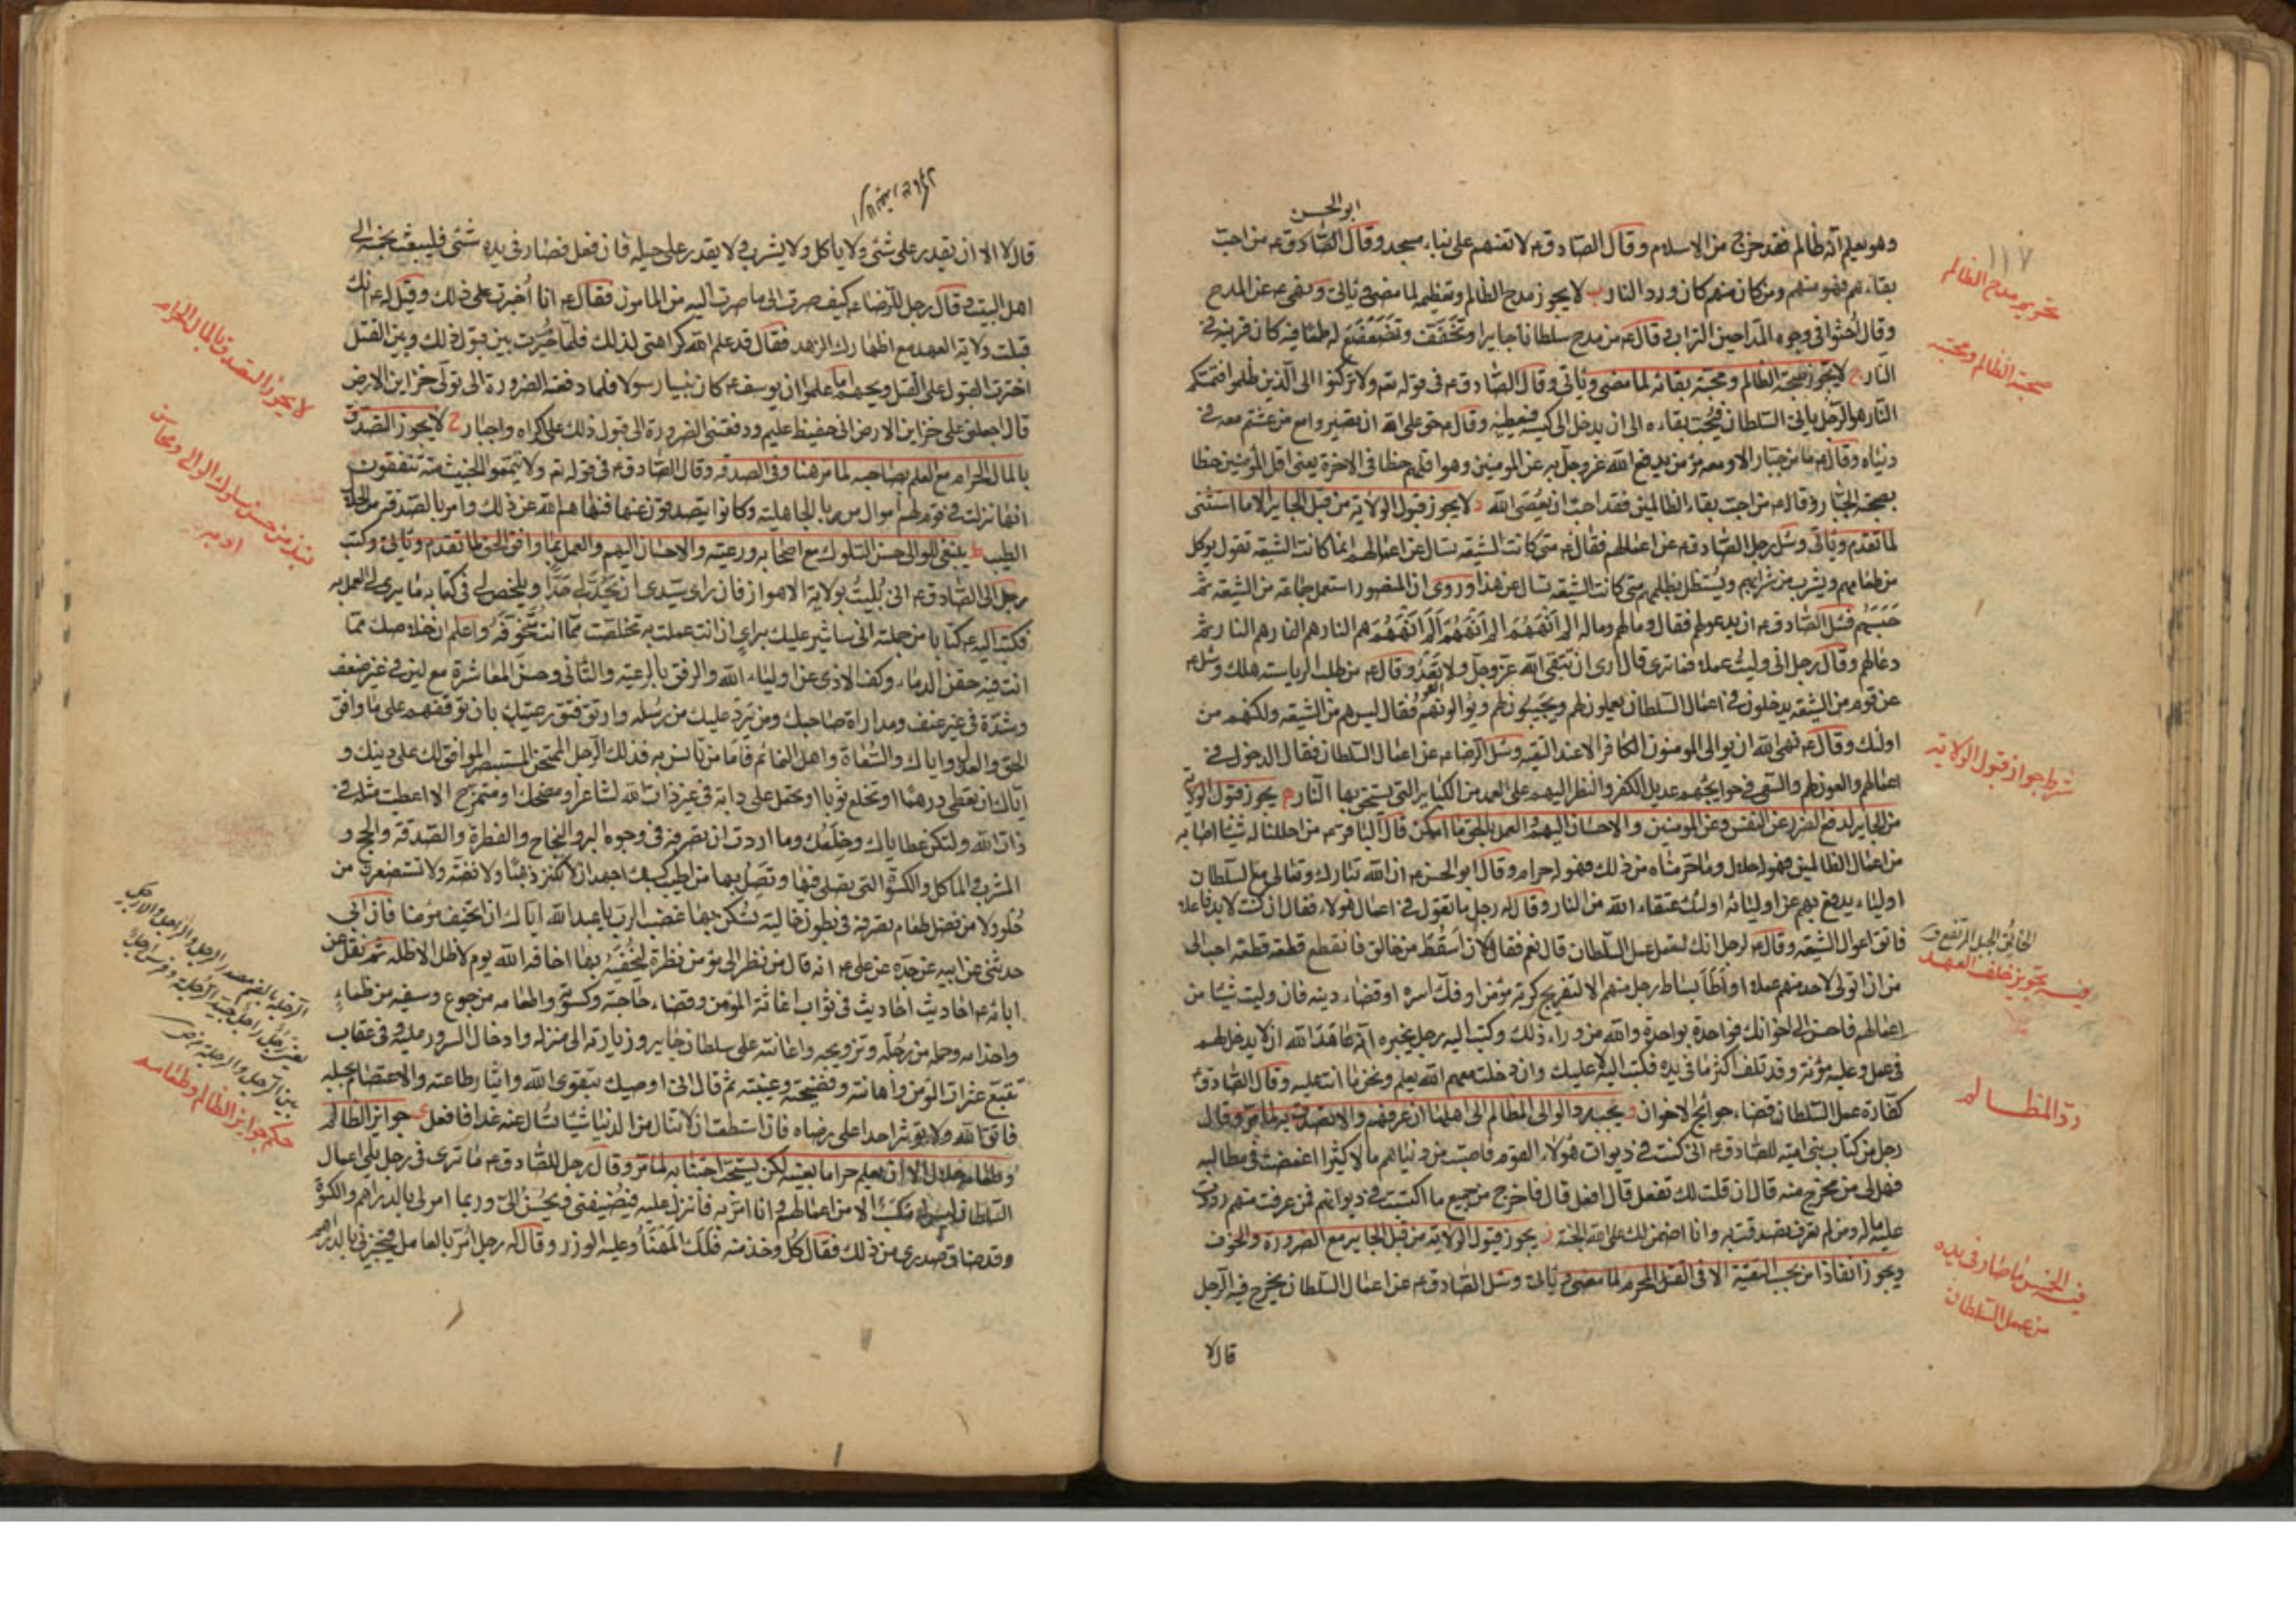 ابو الحسن
وهو يعلم انه ظالم فقد خرج من الاسلام وقال الصادق ع لا تعنهم على بناء مسجد وقال الصادق ع من احب
بقاءهم فهو منهم ومن كان منهم كان ورد النار ب لا يجوز مدح الظالم وتعظيمه لما مضى ويأتي ونهى ع عن المدح
وقال احثوا في وجوه المداحين التراب وقال ع من مدح سلطانا جايرا وتخفف وتضعضع له طمعا فيه كان قرينه في
النار ج لا يجوز صحبة الظالم ومحبة بقائه لما مضى ويأتي وقال الصادق ع في قوله تع ولا تركنوا الى الذين ظلموا فتمسكم
النار هو الرجل يأتي السلطان فيحب بقاءه الى ان يدخل الى كيسه فيعطيه وقال ع حق على الله ان تصيروا مع من عشتم معه في
دنياه وقال ع ما من جبار الا ومعه مؤمن يدفع الله عز وجل به عن المؤمنين وهو اقلهم حظا في الاخرة يعني اقل المؤمنين حظا
بصحبة الجبار وقال ع من احب بقاء الظالمين فقد احب ان يعصى الله د لا يجوز قبول الولاية من قبل الجاير الا ما استثنى
لما تقدم ويأتي وسئل رجل الصادق ع عن اعمالهم فقال ع متى كانت الشيعة تسال عن اعمالهم انما كانت الشيعة تقول يوكل
من طعامهم ويشرب من شرابهم ويستظل بظلهم متى كانت الشيعة تسال عن هذا وروى ان المنصور استعمل جماعة من الشيعة ثم
حبسهم فسئل الصادق ع ان يدعو لهم فقال وما لهم وما له الم انههم الم انههم الم انههم هم النار هم النار هم النار ثم
دعا لهم وقال رجل اني وليت عملا فما ترى قال ارى ان تتقى الله عز وجل ولا تعد وقال ع من طلب الرياسة هلك وسئل ع
عن قوم من الشيعة يدخلون في اعمال السلطان يعملون لهم ويجبون لهم ويوالونهم فقال ليس هم من الشيعة ولكنهم من
اولئك وقال ع نهى الله ان يوالي المؤمنون الكافر الا عند التقية وسئل الرضا ع عن اعمال السلطان فقال الدخول في
اعمالهم والعون لهم والسعي في حوايجهم عديل الكفر والنظر اليهم على العمد من الكباير التي يستحق بها النار ه يجوز قبول الولاية
من الجاير لدفع الضرر عن النفس وعن المؤمنين والاحسان اليهم والعمل بالحق ما امكن قال الباقر ع من احللنا له شيئا اصابه
من اعمال الظالمين فهو له حلال وما حرمناه من ذلك فهو له حرام وقال ابو الحسن ع ان الله تبارك وتعالى مع السلطان
اولياء يدفع بهم عن اوليائه اولئك عتقاء الله من النار وقال له رجل ما تقول في اعمال هؤلاء فقال ان كنت لا بد فاعلا
فاتق اموال الشيعة وقال ع لرجل انك لتعمل عمل السلطان قال نعم فقال لان اسقط من حالق فاتقطع قطعة قطعة احب الى
من ان اتولى لاحد منهم عملا او اطأ بساط رجل منهم الا لتفريج كربة مؤمن او فك اسره او قضاء دينه فان وليت شيئا من
اعمالهم فاحسن الى اخوانك فواحدة بواحدة والله من وراء ذلك وكتب اليه رجل يخبره انه عاهد الله ان لا يدخل لهم
في عمل وعليه مؤنة وقد تلف اكثر ما في يده فكتب اليه لا عليك وان دخلت معهم الله يعلم ونحن ما انت عليه وقال الصادق ع
كفارة عمل السلطان قضاء حوائج الاخوان و يجب رد الوالي المظالم الى اهلها ان عرفهم والا تصدق به لما مر وقال
رجل من كتاب بني امية للصادق ع اني كنت في ديوان هؤلاء القوم فاصبت من دنياهم مالا كثيرا اغمضت في مطالبه
فهل لي من مخرج منه قال ان قلت لك تفعل قال افعل قال فاخرج من جميع ما اكتسبت في ديوانهم فمن عرفت منهم رددت
عليه ماله ومن لم تعرف تصدقت به وانا اضمن لك على الله الجنة ز يجوز قبول الولاية من قبل الجاير مع الضرورة والخوف
ويجوز انفاذ امره بحسب التقية الا في القتل المحرم لما مضى ويأتي وسئل الصادق ع عن اعمال السلطان يخرج فيه الرجل
قال لا
١١٧
تحريم مدح الظالم
صحبة الظالم ومحبته
شرط جواز قبول الولاية
الحالق الجبل المرتفع
فيه تجويز خلف العهد
رد المظالم
فيه الخمس ما صار في يده
من عمل السلطان
قال لا الا ان يقدر على شئ ولا ياكل ولا يشرب ولا يقدر على حيلة فان فعل فصار في يده شئ فليبعث بخمسه الى
اهل البيت وقال رجل للرضا ع كيف صرت الى ما صرت اليه من المامون فقال ع انا اجبرت على ذلك وقيل له ع انك
قبلت ولاية العهد مع اظهارك الزهد فقال قد علم الله كراهتي لذلك فلما خيرت بين قبول ذلك وبين القتل
اخترت القبول على القتل ويحهم اما علموا ان يوسف ع كان نبيا رسولا فلما دفعته الضرورة الى تولى خزاين الارض
قال اجعلني على خزاين الارض اني حفيظ عليم ودفعتني الضرورة الى قبول ذلك على اكراه واجبار ح لا يجوز التصدق
بالمال الحرام مع العلم بصاحبه لما مر هنا وفي الصدقه وقال الصادق ع في قوله تع ولا تيمموا الخبيث منه تنفقون
انها نزلت في قوم لهم اموال من ربا الجاهلية وكانوا يتصدقون عنها فنهاهم الله عن ذلك وامر بالصدقة من الحلال
الطيب ط ينبغي للوالي حسن السلوك مع اصحابه ورعيته والاحسان اليهم والعمل بما وافق الحق لما تقدم ويأتي وكتب
رجل الى الصادق ع اني بليت بولاية الاهواز فان راى سيدي ان يحد لي حدا ويلخص لي في كتابه ما يرى لي العمل به
فكتب اليه ع كتابا من جملته اني ساشير عليك براى ان انت عملت به تخلصت مما انت متخوفه واعلم ان خلاصك مما
انت فيه حقن الدماء وكف الاذى عن اولياء الله والرفق بالرعية والتأني وحسن المعاشرة مع لين في غير ضعف
وشدة في غير عنف ومداراة صاحبك ومن يرد عليك من رسله وارتق فتق رعيتك بان توقفهم على ما وافق
الحق والعدل واياك والسعاة واهل النمائم فاما من تأنس به فذلك الرجل الممتحن المستبصر الموافق لك على دينك و
اياك ان تعطى درهما او تخلع ثوبا او تحمل على دابة في غير ذات الله لشاعر او مضحك او متمزح الا اعطيت مثله في
ذات الله ولتكن عطاياك وخلعك وما اردت ان تصرفه في وجوه البر والنجاح والفطرة والصدقة والحج و
المشرب والماكل والكسوة التي تصلى فيها وتصل بها من اطيب كسبك اجهد ان لا تكنز ذهبا ولا فضة ولا تستصغرن من
حلو ولا من فضل طعام تصرفه في بطون خالية تسكن بها غضب الرب يا عبد الله اياك ان تخيف مؤمنا فان ابي
حدثني عن ابيه عن جده عن علي ع انه قال من نظر الى مؤمن نظرة ليخيفه بها اخافه الله يوم لا ظل الا ظله ثم نقل عن
ابائه ع احاديث احاديث في ثواب اغاثة المؤمن وقضاء حاجته وكسوته واطعامه من جوع وسقيه من ظماء
واخدامه وحمله من رجله وتزويجه واعانته على سلطان جاير وزيارته الى منزله وادخال السرور عليه وفي عقاب
تتبع عثرات المؤمن واهانته وفضيحته وغيبته ثم قال اني اوصيك بتقوى الله وايثار طاعته والاعتصام بحبله
فاتق الله ولا تؤثر احدا على رضاه فان استطعت ان لا تنال من الدنيا شيئا تسال عنه غدا فافعل ى جوايز الظالم
وطعامه حلال الا ان يعلم حراما بعينه لكن يستحب اجتنابه لما مر وقال رجل للصادق ع ما ترى في رجل يلي اعمال
السلطان ليس له مكسب الا من اعمالهم وانا امر به فانزل عليه فيضيفني ويحسن الى وربما امر لي بالدراهم والكسوة
وقد ضاق صدري من ذلك فقال كل وخذ منه فلك المهنأ وعليه الوزر وقال له رجل امر بالعامل فيجيزني بالدراهم
لا يجوز التصدق بالمال الحرام
نبذ من حسن سلوك الوالي ومحاسن
ادبه
الرجلة بالضم مصدر الرجل والراجل والارجل
حكم جوايز الظالم وطعامه